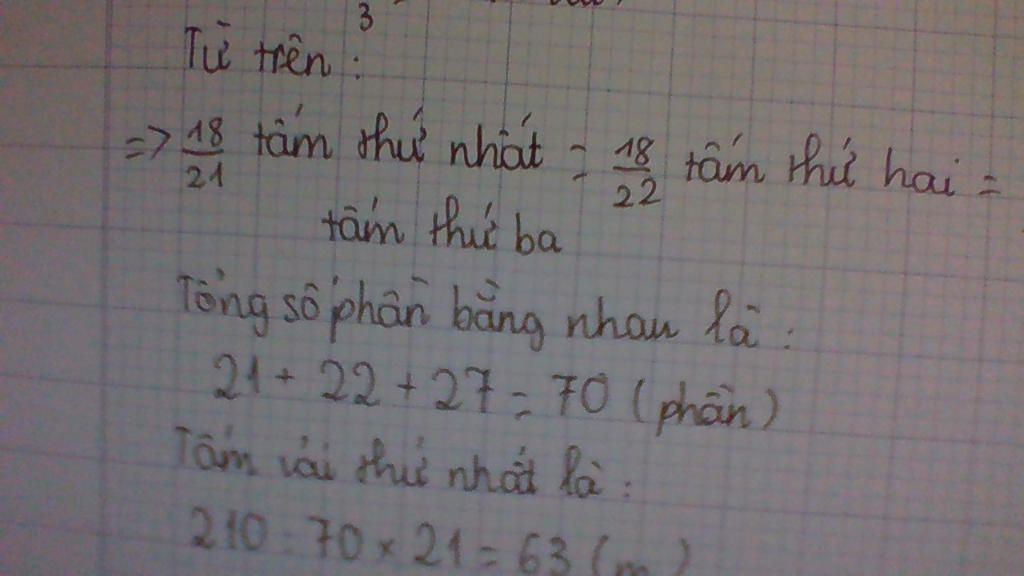 3
Từ trên :
=> 18/21 tấm thứ nhất = 18/22 tấm thứ hai =
tấm thứ ba
Tổng số phần bằng nhau là :
21 + 22 + 27 = 70 (phần)
Tấm vải thứ nhất là :
210 : 70 x 21 = 63 (m)